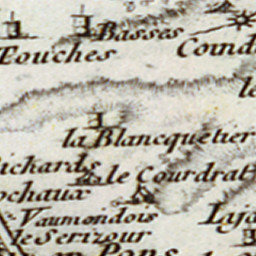 Basses
Touches Cound
le
la Blancquetier
Richards le Courdrat
ochaux
Vaumondois Laja
le Serizour
Pons